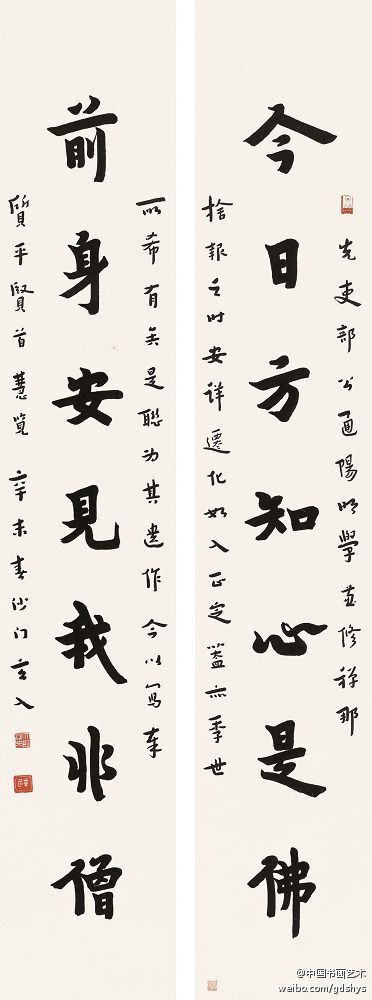 今日方知心是佛
前身安見我非僧
先吏部公通陽明學修禅那
捨報之時安詳遷化如入正定蓋亦季世
所希有矣是聯為其遺作今以寫奉
質平賢首慧覽 辛未春沙门玄入
@中国书画艺术
weibo.com/gdshys